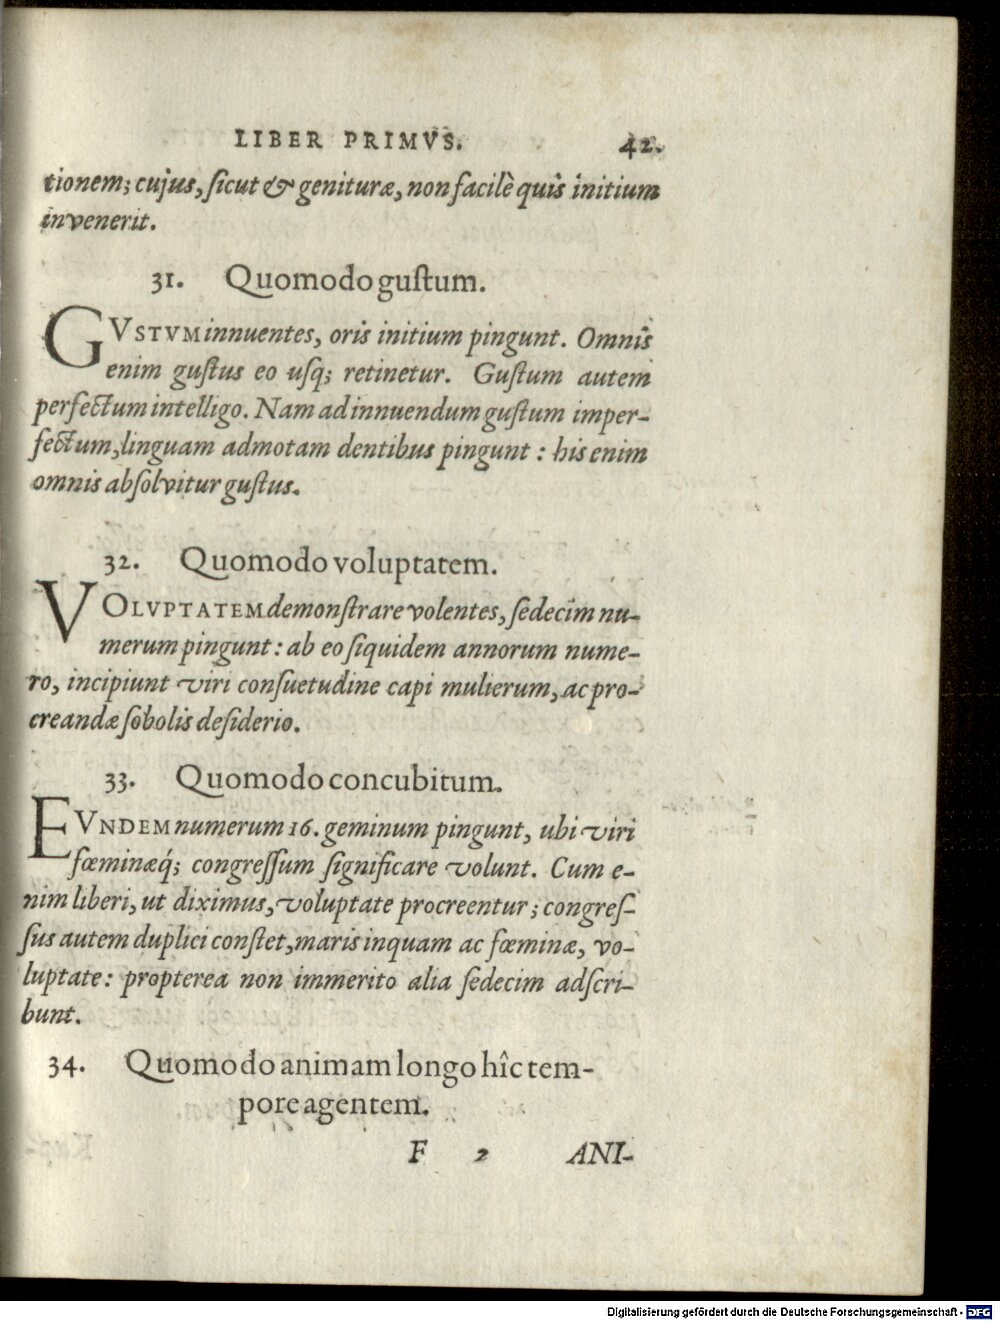 LIBER PRIMVS. 42.
tionem; cujus, ſicut & genituræ, non facilè quis initium
invenerit.
31. Quomodo guſtum.
GVSTVM innuentes, oris initium pingunt. Omnis
enim guſtus eo uſq; retinetur. Guſtum autem
perfectum intelligo. Nam ad innuendum guſtum imper-
fectum, linguam admotam dentibus pingunt : his enim
omnis abſolvitur guſtus.
32. Quomodo voluptatem.
VOLVPTATEM demonſtrare volentes, ſedecim nu-
merum pingunt : ab eo ſiquidem annorum nume-
ro, incipiunt viri conſuetudine capi mulierum, ac pro-
creandæ ſobolis deſiderio.
33. Quomodo concubitum.
EVNDEM numerum 16. geminum pingunt, ubi viri
fœminæq́; congreſſum ſignificare volunt. Cum e-
nim liberi, ut diximus, voluptate procreentur ; congreſ-
ſus autem duplici conſtet, maris inquam ac fœminæ, vo-
luptate : propterea non immerito alia ſedecim adſcri-
bunt.
34. Quomodo animam longo hîc tem-
pore agentem.
F 2 ANI-
Digitalisierung gefördert durch die Deutsche Forschungsgemeinschaft - DFG